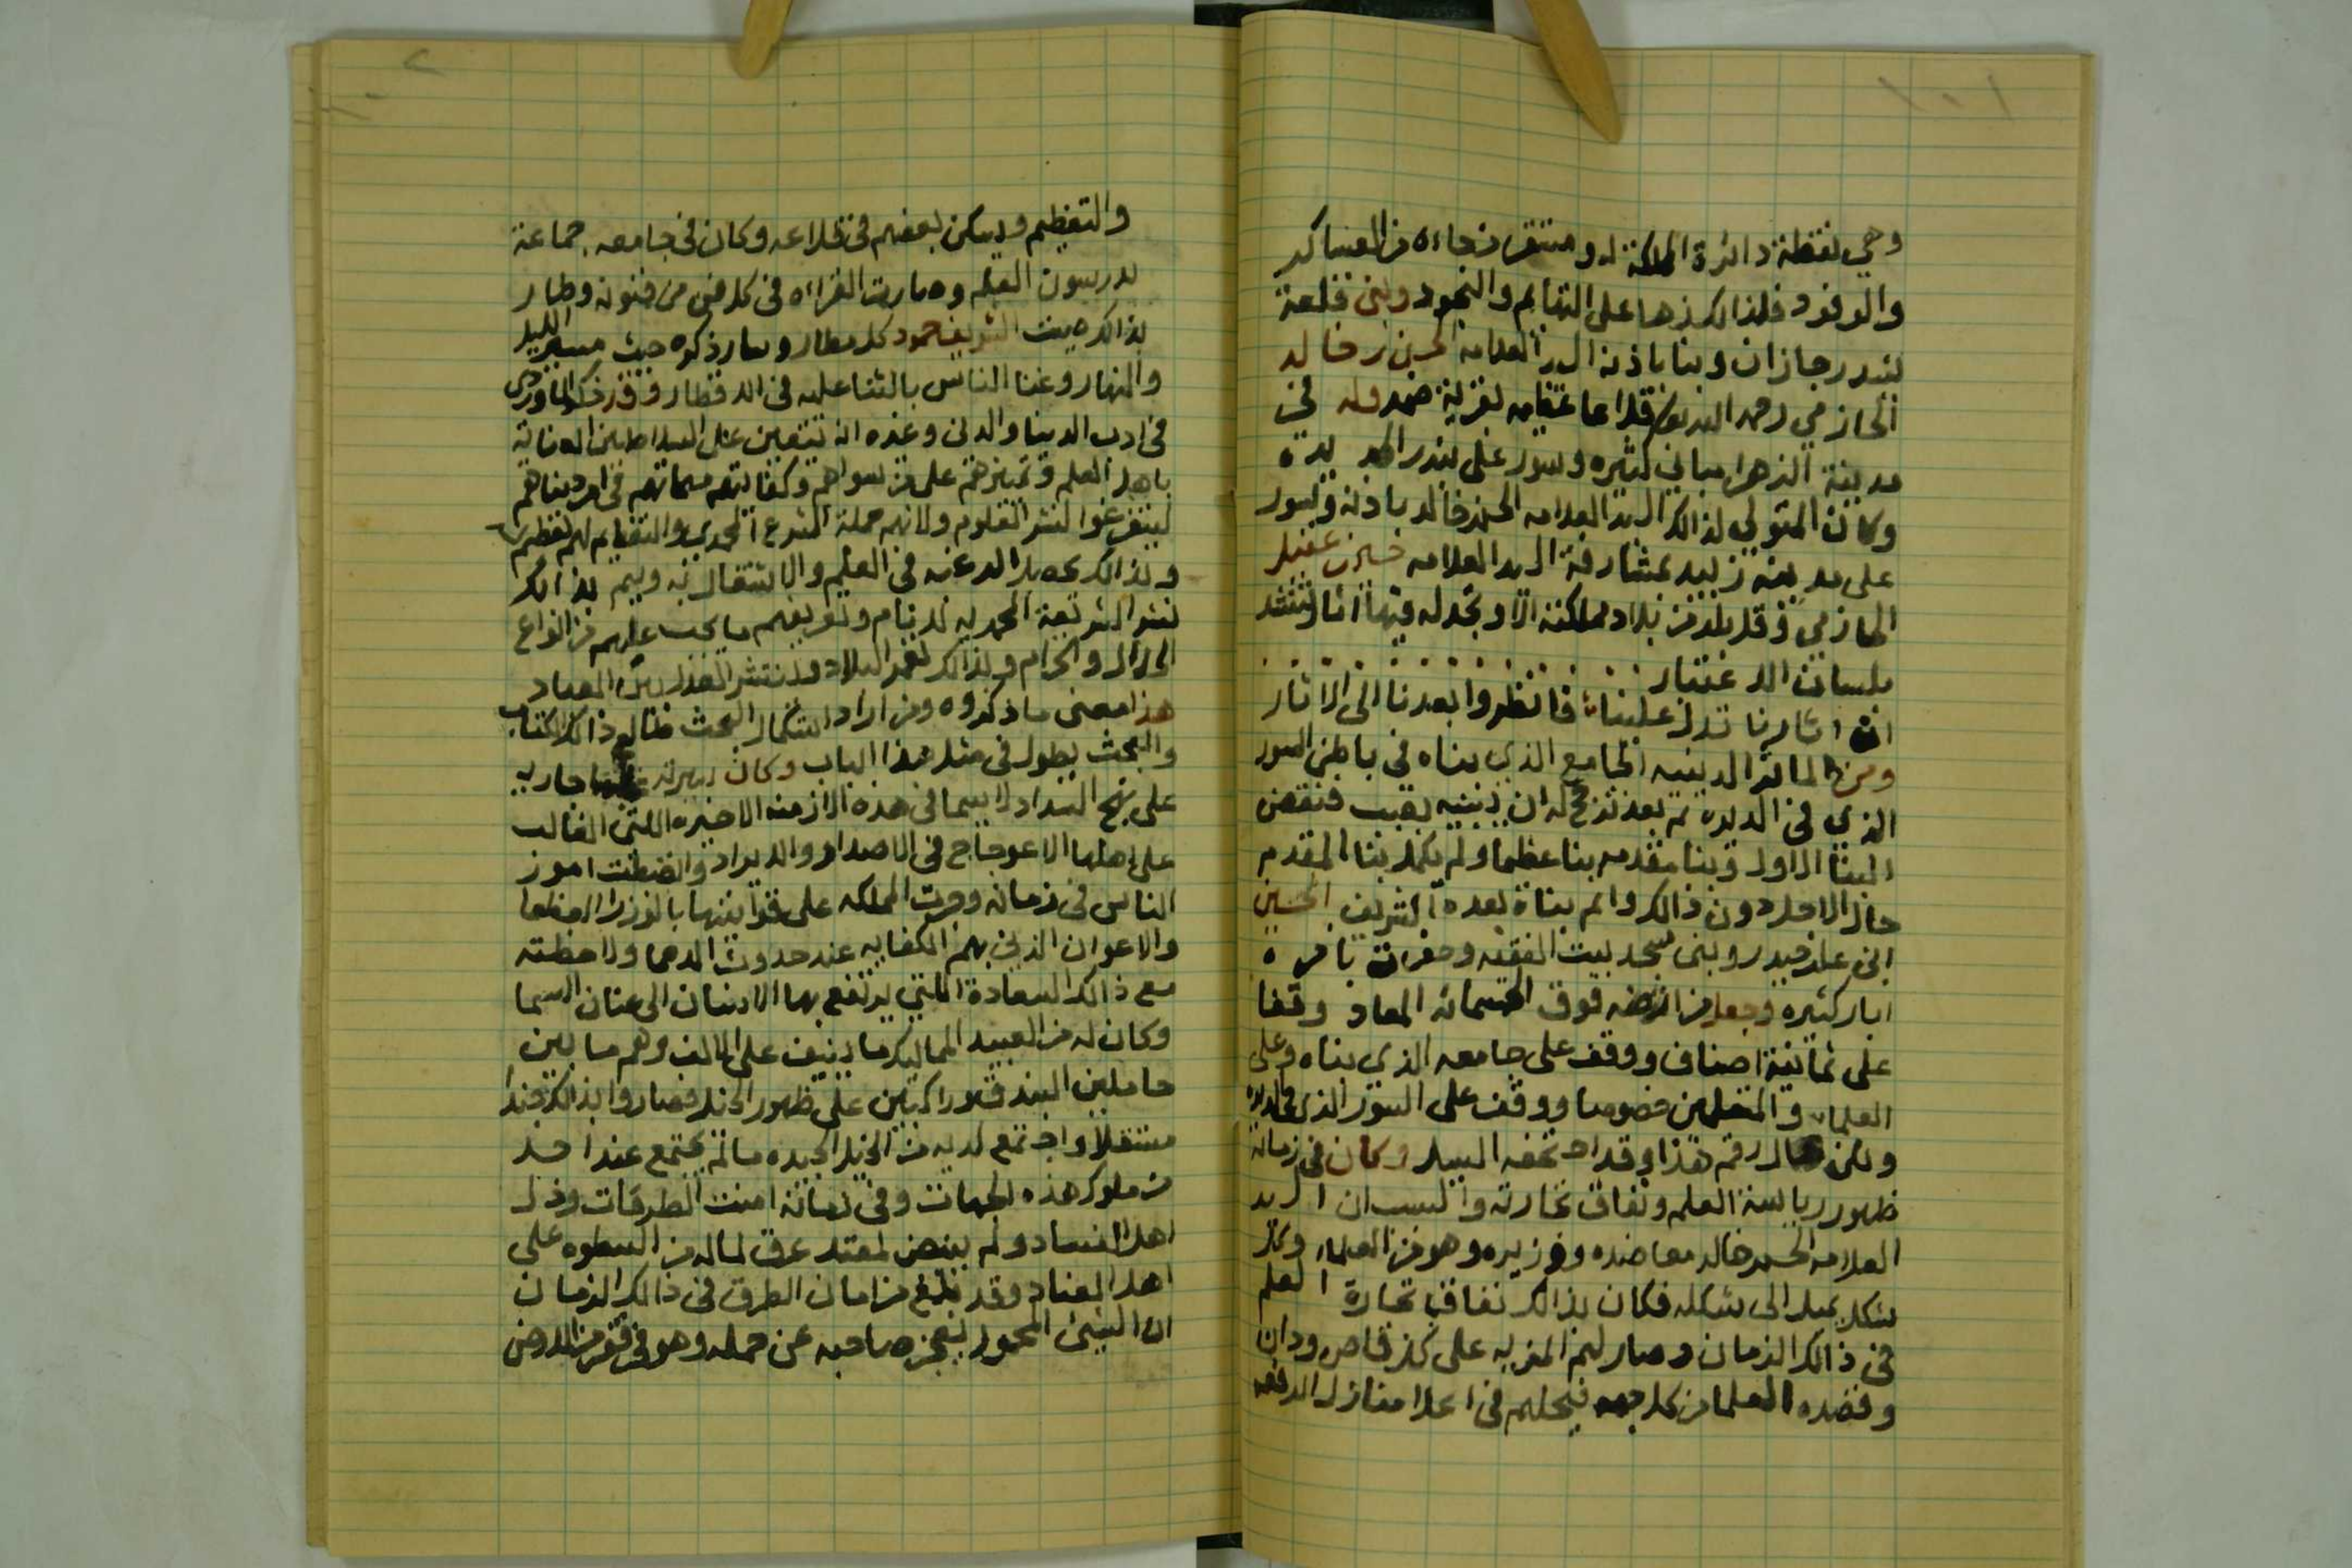 وهي نقطة دائرة المملكة له ومستقر من جاءه من العساكر
والوفود فلذالك زها على التهايم والنجود وبنى قلعة
بندر جازان وبنا باذنه السيد العلامه الحسن بن خالد
الحازمي رحمه الله قلاعا عظيمه بقرية ضمد وله في
مدينة الزهرا مباني كثيره وسور على بندر الحديدة
وكان المتولي لذالك السيد العلامه الحسن بن خالد باذنه وسور
على مدينة زبيد بمشارفة السيد العلامه حسين بن عقيل
الحازمي وقل بلد من بلاد مملكته الا وتجد له فيها اثار تنشد
بلسان الاعتبار
ان اثارنا تدل علينا فانظروا بعدنا الى الاثار
ومن الماثر الدينيه الجامع الذي بناه في باطن السور
الذي في الديره ثم بعد ترجح له ان يبنيه بقبب فنقض
البنا الاول وبنا مقدمه بنا عظيما ولم يكمل بنا المقدم
حال الاجل دون ذالك واتم بناه بعده الشريف الحسين
ابن علي حيدر وبنى مسجد بيت الفقيه وحفرت بامره
ابار كثيره وجعل من ارضه فوق الخسمائه المعاد وقفا
على ثمانية اصناف ووقف على جامعه الذي بناه وعلى
العلماء والمتعلمين خصوصا ووقف على السور الذي في الديره
ولكن حال رقم هذا وقد اجتحفه السيل وكان في زمانه
ظهور رياسة العلم ونفاق تجارته والسبب ان السيد
العلامه الحسن بن خالد معاضده ووزيره وهو من العلماء وكل
شكل يميل الى شكله فكان بذالك نفاق تجارة العلم
في ذالك الزمان وصار لهم المزيه على كل قاص ودان
وقصده العلما من كل جهه فيحلهم في اعلا منازل الرفعه
والتعظيم ويسكن بعضهم في قلاعه وكان في جامعه جماعة
يدرسون العلم وصارت القراءه في كل فن من فنونه وطار
بذالك صيت الشريف حمود كل مطار وسار ذكره حيث مسير الليل
والنهار وغنا الناس بالثنا عليه في الاقطار وقد ذكر الماوردي
في ادب الدينا والدين وغيره انه يتعين على السلاطين العنايه
باهل العلم وتميزهم على من سواهم وكفايتهم مهماتهم في امر دنياهم
ليتفرغوا لنشر العلوم ولانهم حملة الشرع المحمدي والتعظيم لهم تعظيم
وبذالك يحصل الرغبه في العلم والاشتغال به ويتم بذالك
نشر الشريعة المحمديه للانام وتعريفهم ما يجب عليهم من انواع
الحلال والحرام وبذالك تعمر البلاد وينتشر العدل بين العباد
هذا معنى ما ذكروه ومن اراد استكمال البحث طالع ذالك الكتاب
والبحث يطول في مثل هذا الباب وكان سيرته جاريه
على نهج السداد لا سيما في هذه الازمنه الاخيره اللتي الغالب
على اهلها الاعوجاج في الاصدار والايراد وانضبطت امور
الناس في زمانه وجرت المملكه على قوانينها بالوزرا العظما
والاعوان الذين بهم الكفايه عند حدوث الدهما ولاحظته
مع ذالك السعادة اللتي يرتفع بها الانسان الى عنان السما
وكان له من العبيد المماليك ما ينيف على الالف وهم ما بين
حاملين البندق وراكبين على ظهور الخيل فصاروا بذالك جندا
مستقلا واجتمع لديه من الخيل الجيده ما لم يجتمع عند احد
من ملوك هذه الجهات وفي زمانه امنت الطرقات وذل
اهل الفساد ولم ينبض لمعتد عرق لماله من السطوه على
اهل العناد وقد بلغ من امان الطرق في ذالك الزمان
ان الشيئ المحمول يعجز صاحبه عن حمله وهو في قفر من الارض